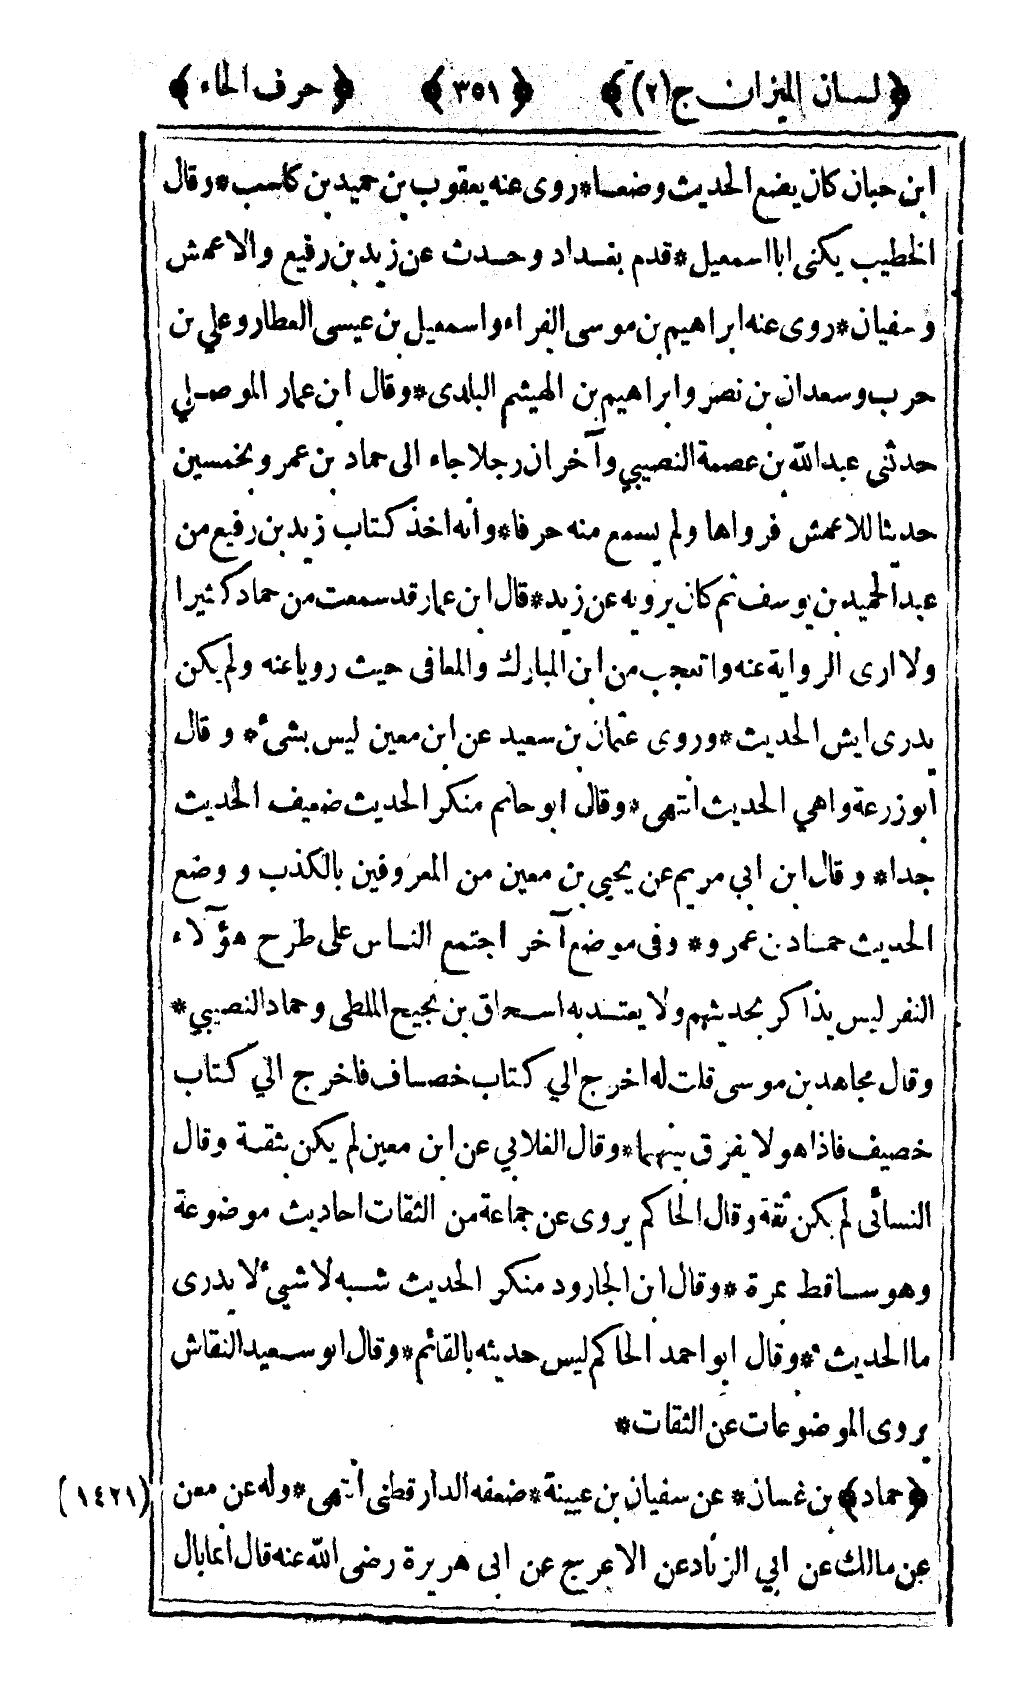 ﴿لسان الميزان ج (٢)﴾ ﴿٣٥١﴾ ﴿حرف الحاء﴾
ابن حبان كان يضع الحديث وضعا * روى عنه يعقوب بن حميد بن كاسب * وقال
الخطيب يكنى ابا اسمعيل * قدم بغداد وحدث عن زيد بن رفيع والاعمش
وسفيان * روى عنه ابراهيم بن موسى الفراء واسمعيل بن عيسى العطار وعلي بن
حرب وسعدان بن نصر وابراهيم بن الهيثم البلدى * وقال ابن عمار الموصلي
حدثنى عبدالله بن عصمة النصيبي وآخران رجلا جاء الى حماد بن عمرو بخمسين
حديثا للاعمش فرواها ولم يسمع منه حرفا * وانه اخذ كتاب زيد بن رفيع من
عبدالحميد بن يوسف ثم كان يرويه عن زيد * قال ابن عمار قد سمعت من حماد كثيرا
ولا ارى الرواية عنه واتعجب من ابن المبارك والمعافى حيث رويا عنه ولم يكن
يدرى ايش الحديث * وروى عثمان بن سعيد عن ابن معين ليس بشئ * وقال
ابو زرعة واهي الحديث انتهى * وقال ابو حاتم منكر الحديث ضعيف الحديث
جدا * وقال ابن ابي مريم عن يحيى بن معين من المعروفين بالكذب ووضع
الحديث حماد بن عمرو * وفى موضع آخر اجتمع الناس على طرح هؤلآء
النفر ليس يذاكر بحديثهم ولا يعتد به اسحاق بن نجيح الملطى وحماد النصيبي *
وقال مجاهد بن موسى قلت له اخرج الي كتاب خصاف فاخرج الي كتاب
خصيف فاذا هو لا يفرق بينهما * وقال الغلابي عن ابن معين لم يكن بثقة وقال
النسائى لم يكن ثقة وقال الحاكم يروى عن جماعة من الثقات احاديث موضوعة
وهو ساقط بمرة * وقال ابن الجارود منكر الحديث شبه لا شيئ لا يدرى
ما الحديث * وقال ابو احمد الحاكم ليس حديثه بالقائم * وقال ابو سعيد النقاش
يروى الموضوعات عن الثقات *
﴿حماد﴾ بن غسان * عن سفيان بن عيينة * ضعفه الدارقطنى انتهى * وله عن معن (١٤٢١)
عن مالك عن ابي الزناد عن الاعرج عن ابى هريرة رضى الله عنه قال انما بال